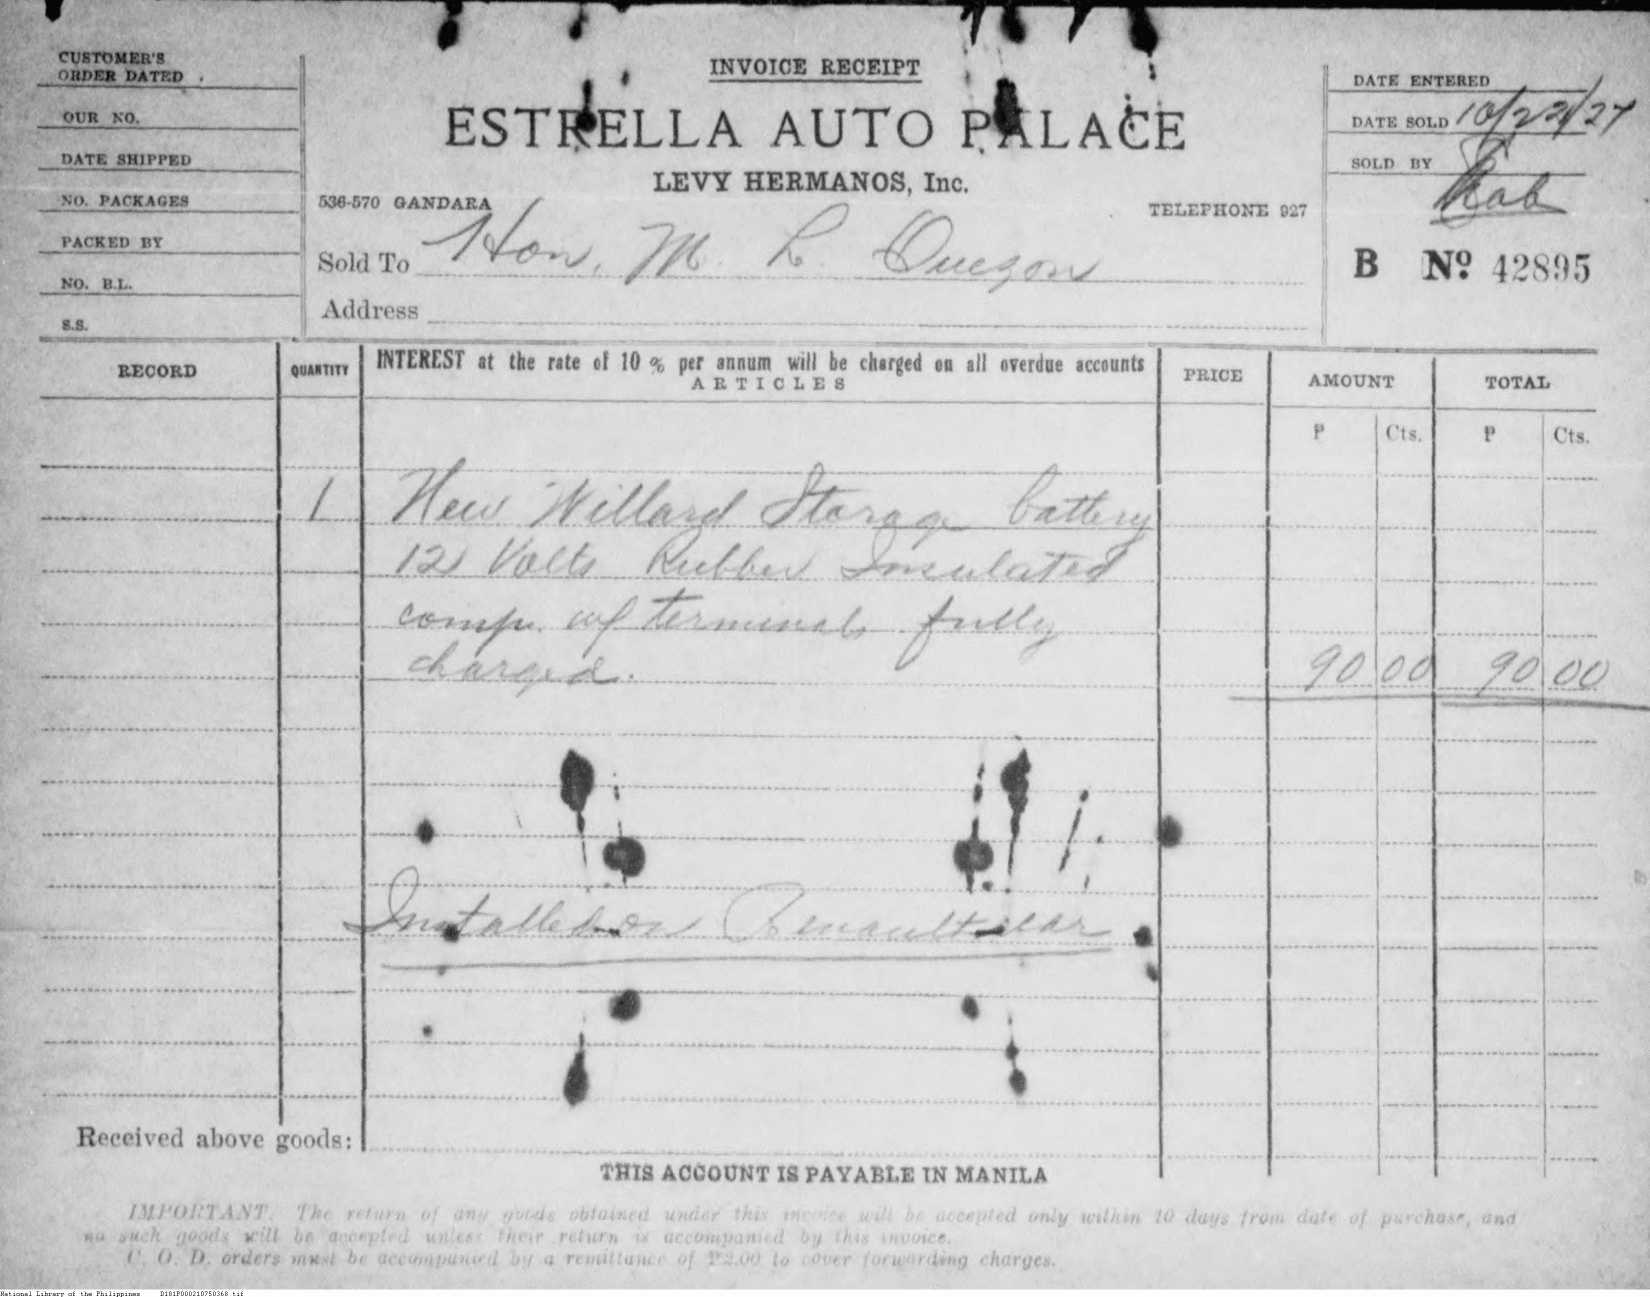 CUSTOMER'S
ORDER DATED
OUR NO.
DATE SHIPPED
NO. PACKAGES
PACKED BY
NO. B.L.
S.S.
INVOICE RECEIPT
ESTRELLA AUTO PALACE
LEVY HERMANOS, Inc.
536-570 GANDARA
TELEPHONE 927
Sold To Hon. M. L. Quezon
Address
DATE ENTERED
DATE SOLD
SOLD BY
B No 42895
RECORD
QUANTITY
INTEREST at the rate of 10 % per annum will be charged on all overdue accounts
ARTICLES
PRICE
AMOUNT
TOTAL
₱ Cts. ₱ Cts.
1 New Willard Storage battery
12 Volts Rubber Insulated
comp. w/ terminals fully
charged. 90 00 90 00
Installed on Renault car
Received above goods:
THIS ACCOUNT IS PAYABLE IN MANILA
IMPORTANT. The return of any goods obtained under this invoice will be accepted only within 10 days from date of purchase, and
no such goods will be accepted unless their return is accompanied by this invoice.
C. O. D. orders must be accompanied by a remittance of ₱2.00 to cover forwarding charges.
National Library of the Philippines D181P000210750368.tif